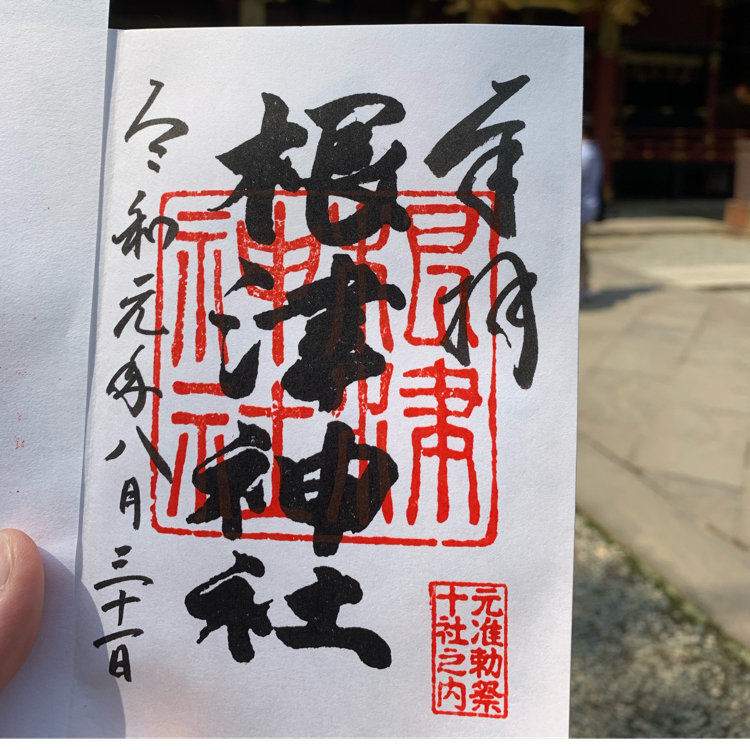 奉拝
根津神社
令和元年八月三十一日
根津神社
元准勅祭
十社之内